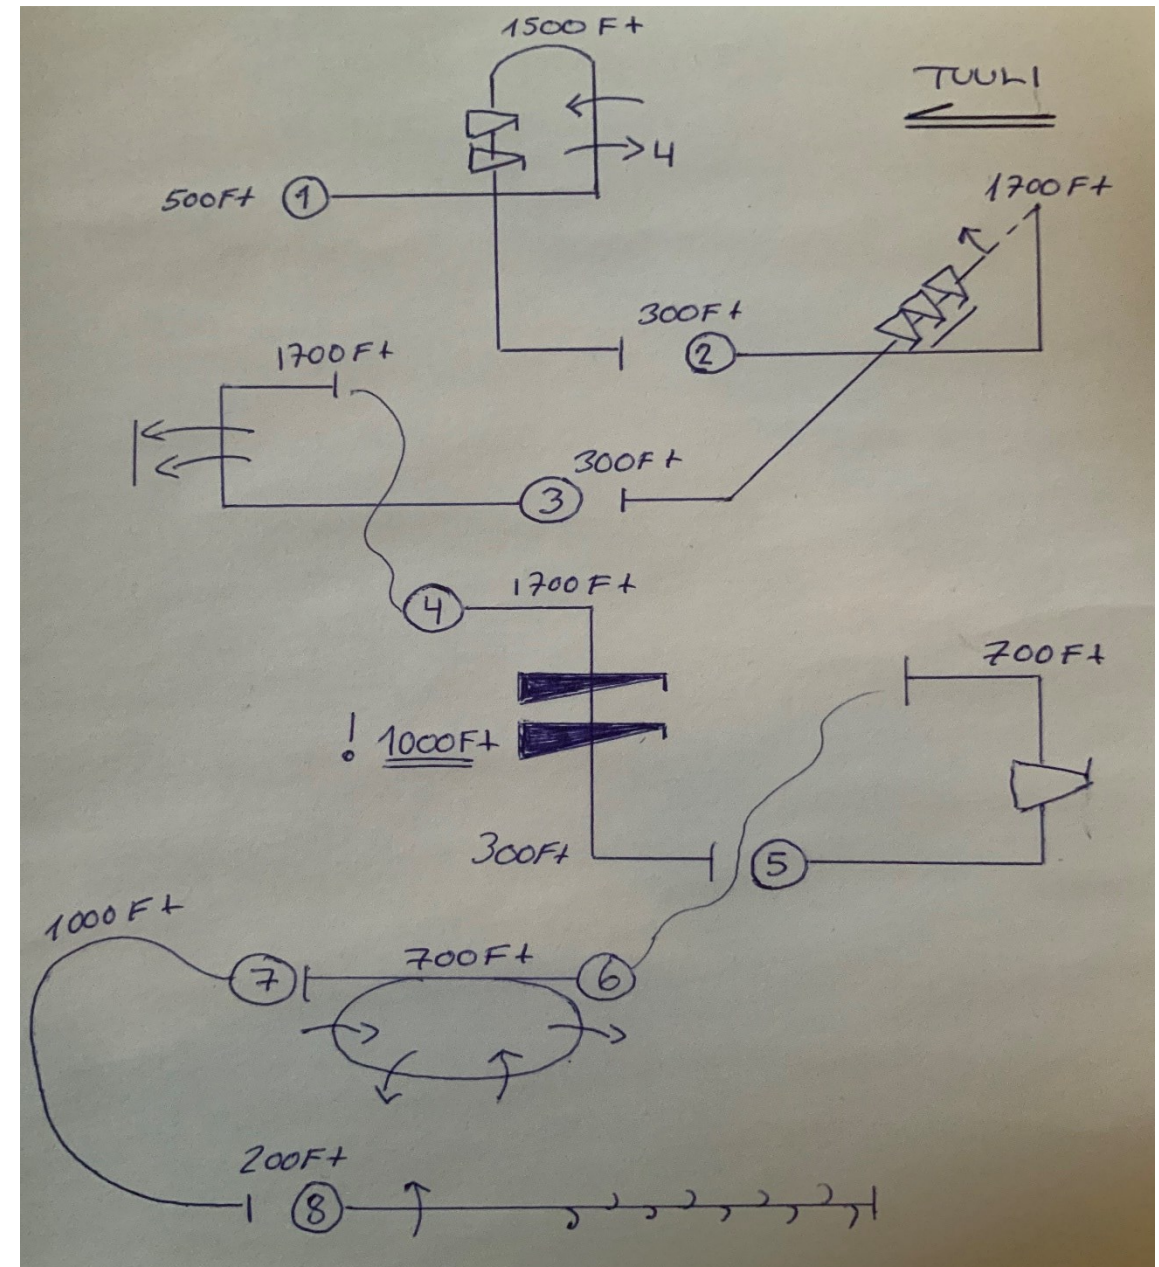 1500Ft
TUULI
4
500Ft 1
1700Ft
300Ft
2
1700Ft
300Ft
3
1700Ft
4
700Ft
! 1000Ft
300Ft
5
1000Ft
700Ft
7
6
200Ft
8